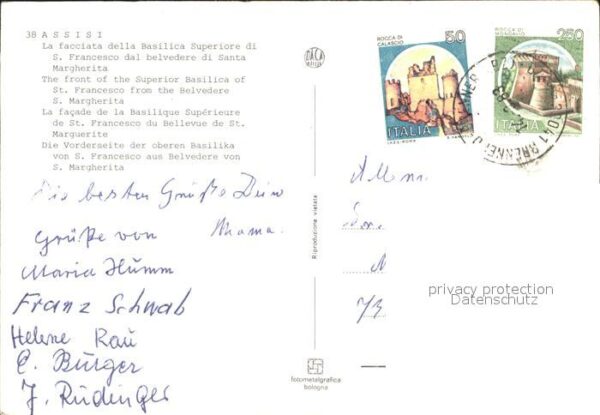 38 ASSISI
La facciata della Basilica Superiore di
S. Francesco dal belvedere di Santa
Margherita
The front of the Superior Basilica of
St. Francesco from the Belvedere
S. Margherita
La façade de la Basilique Supérieure
de St. Francesco du Bellevue de St.
Marguerite
Die Vorderseite der oberen Basilika
von S. Francesco aus Belvedere von
S. Margherita
Die besten Grüße Deine
Mama.
Grüße von
Maria Humm
Franz Schwab
Helene Rau
E. Bürger
J. Rüdinger
DACA
Riproduzione vietata
fotometalgrafica
bologna
ROCCA DI
CALASCIO
50
ITALIA
ROCCA DI
MONDAVIO
250
ITALIA
privacy protection
Datenschutz